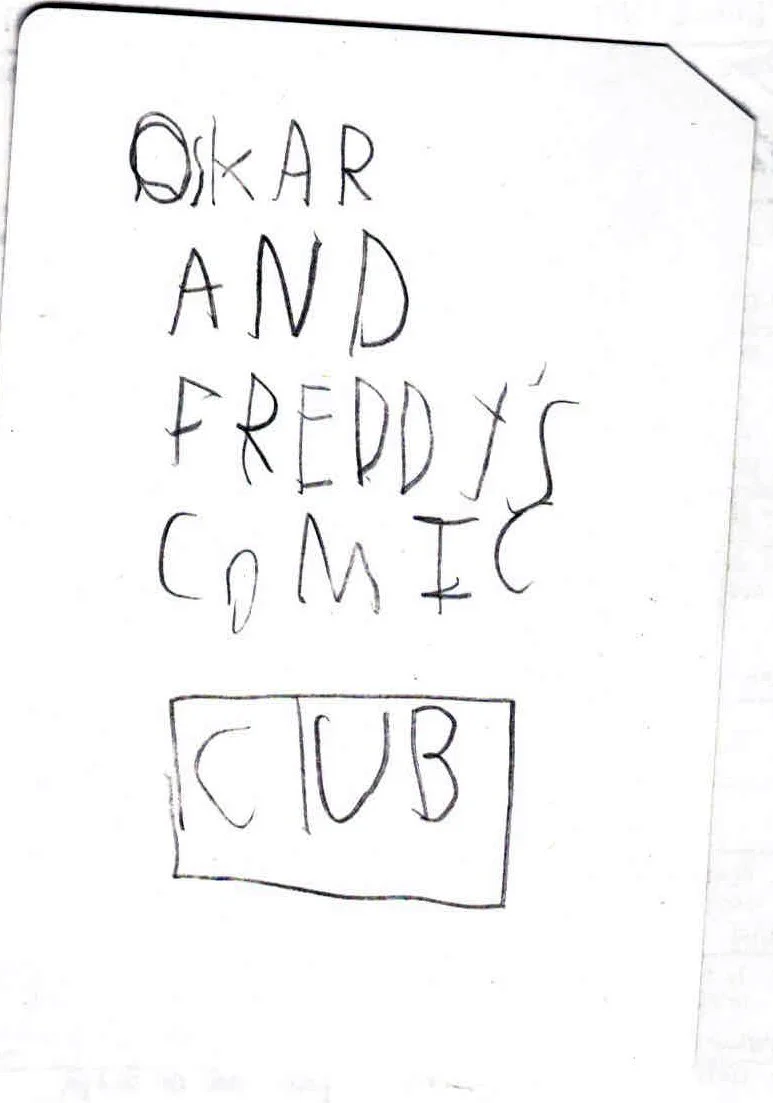 OskAR
AND
FREDDY'S
COMIC
ClUB